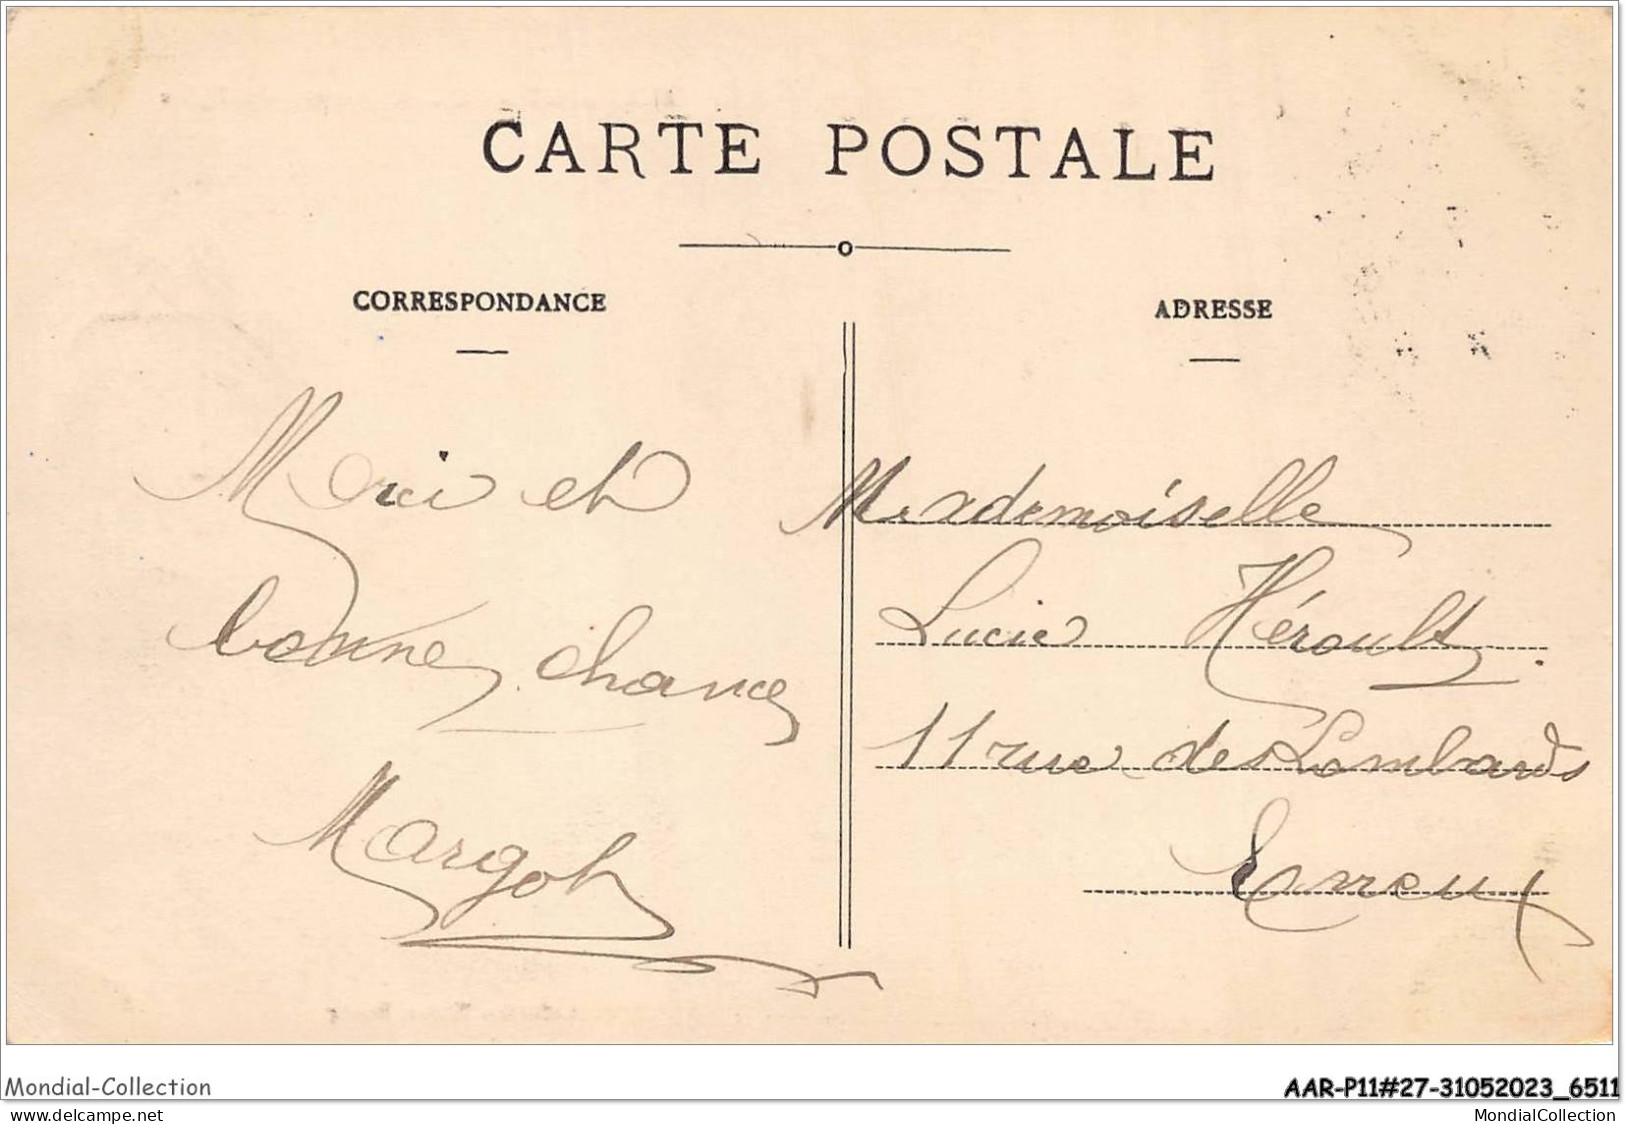 CARTE POSTALE
CORRESPONDANCE
Merci et
bonne chance
Margot
ADRESSE
Mademoiselle
Lucie Hérault.
11 rue des Lombards
Evreux
Mondial-Collection
AAR-P11#27-31052023_6511
www.delcampe.net
MondialCollection